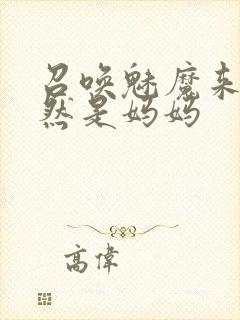 召唤魅魔来
然是妈妈
高偉